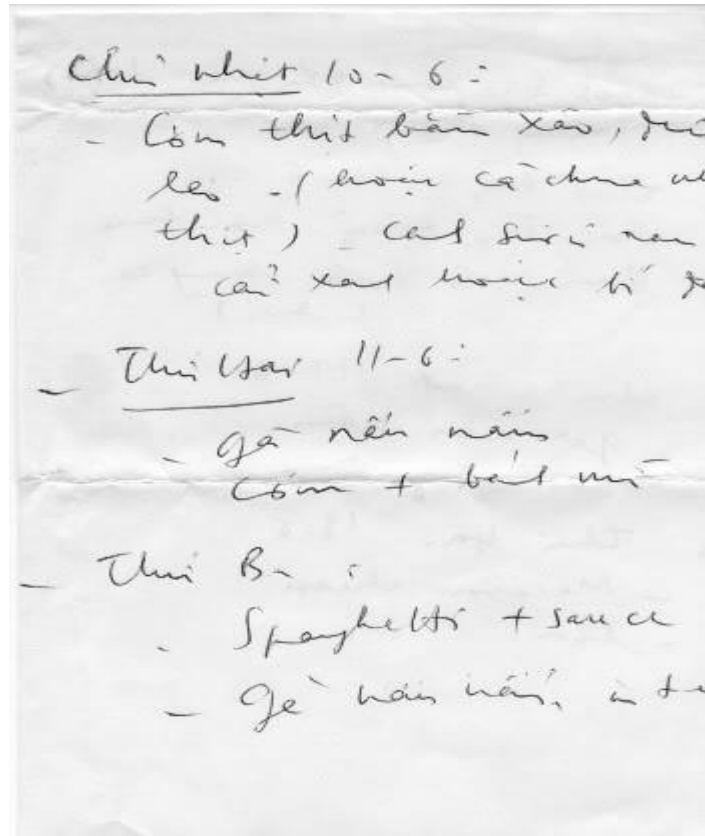 Chủ nhật 10-6:
- Cơm thịt bằm xào,
leo - (hoặc cà chua
thịt) - canh sườn
cải xanh hoặc bí
- Thứ Hai 11-6:
- gà nấu nấm
Cơm + bánh mì
- Thứ Ba:
- Spaghetti + sauce
- gà nấu nấm,